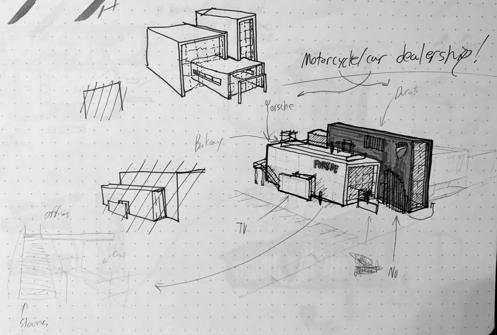 Motorcycle/car dealership!
Porsche
Ducati
Balcony
TV
No
Offices
Stairs